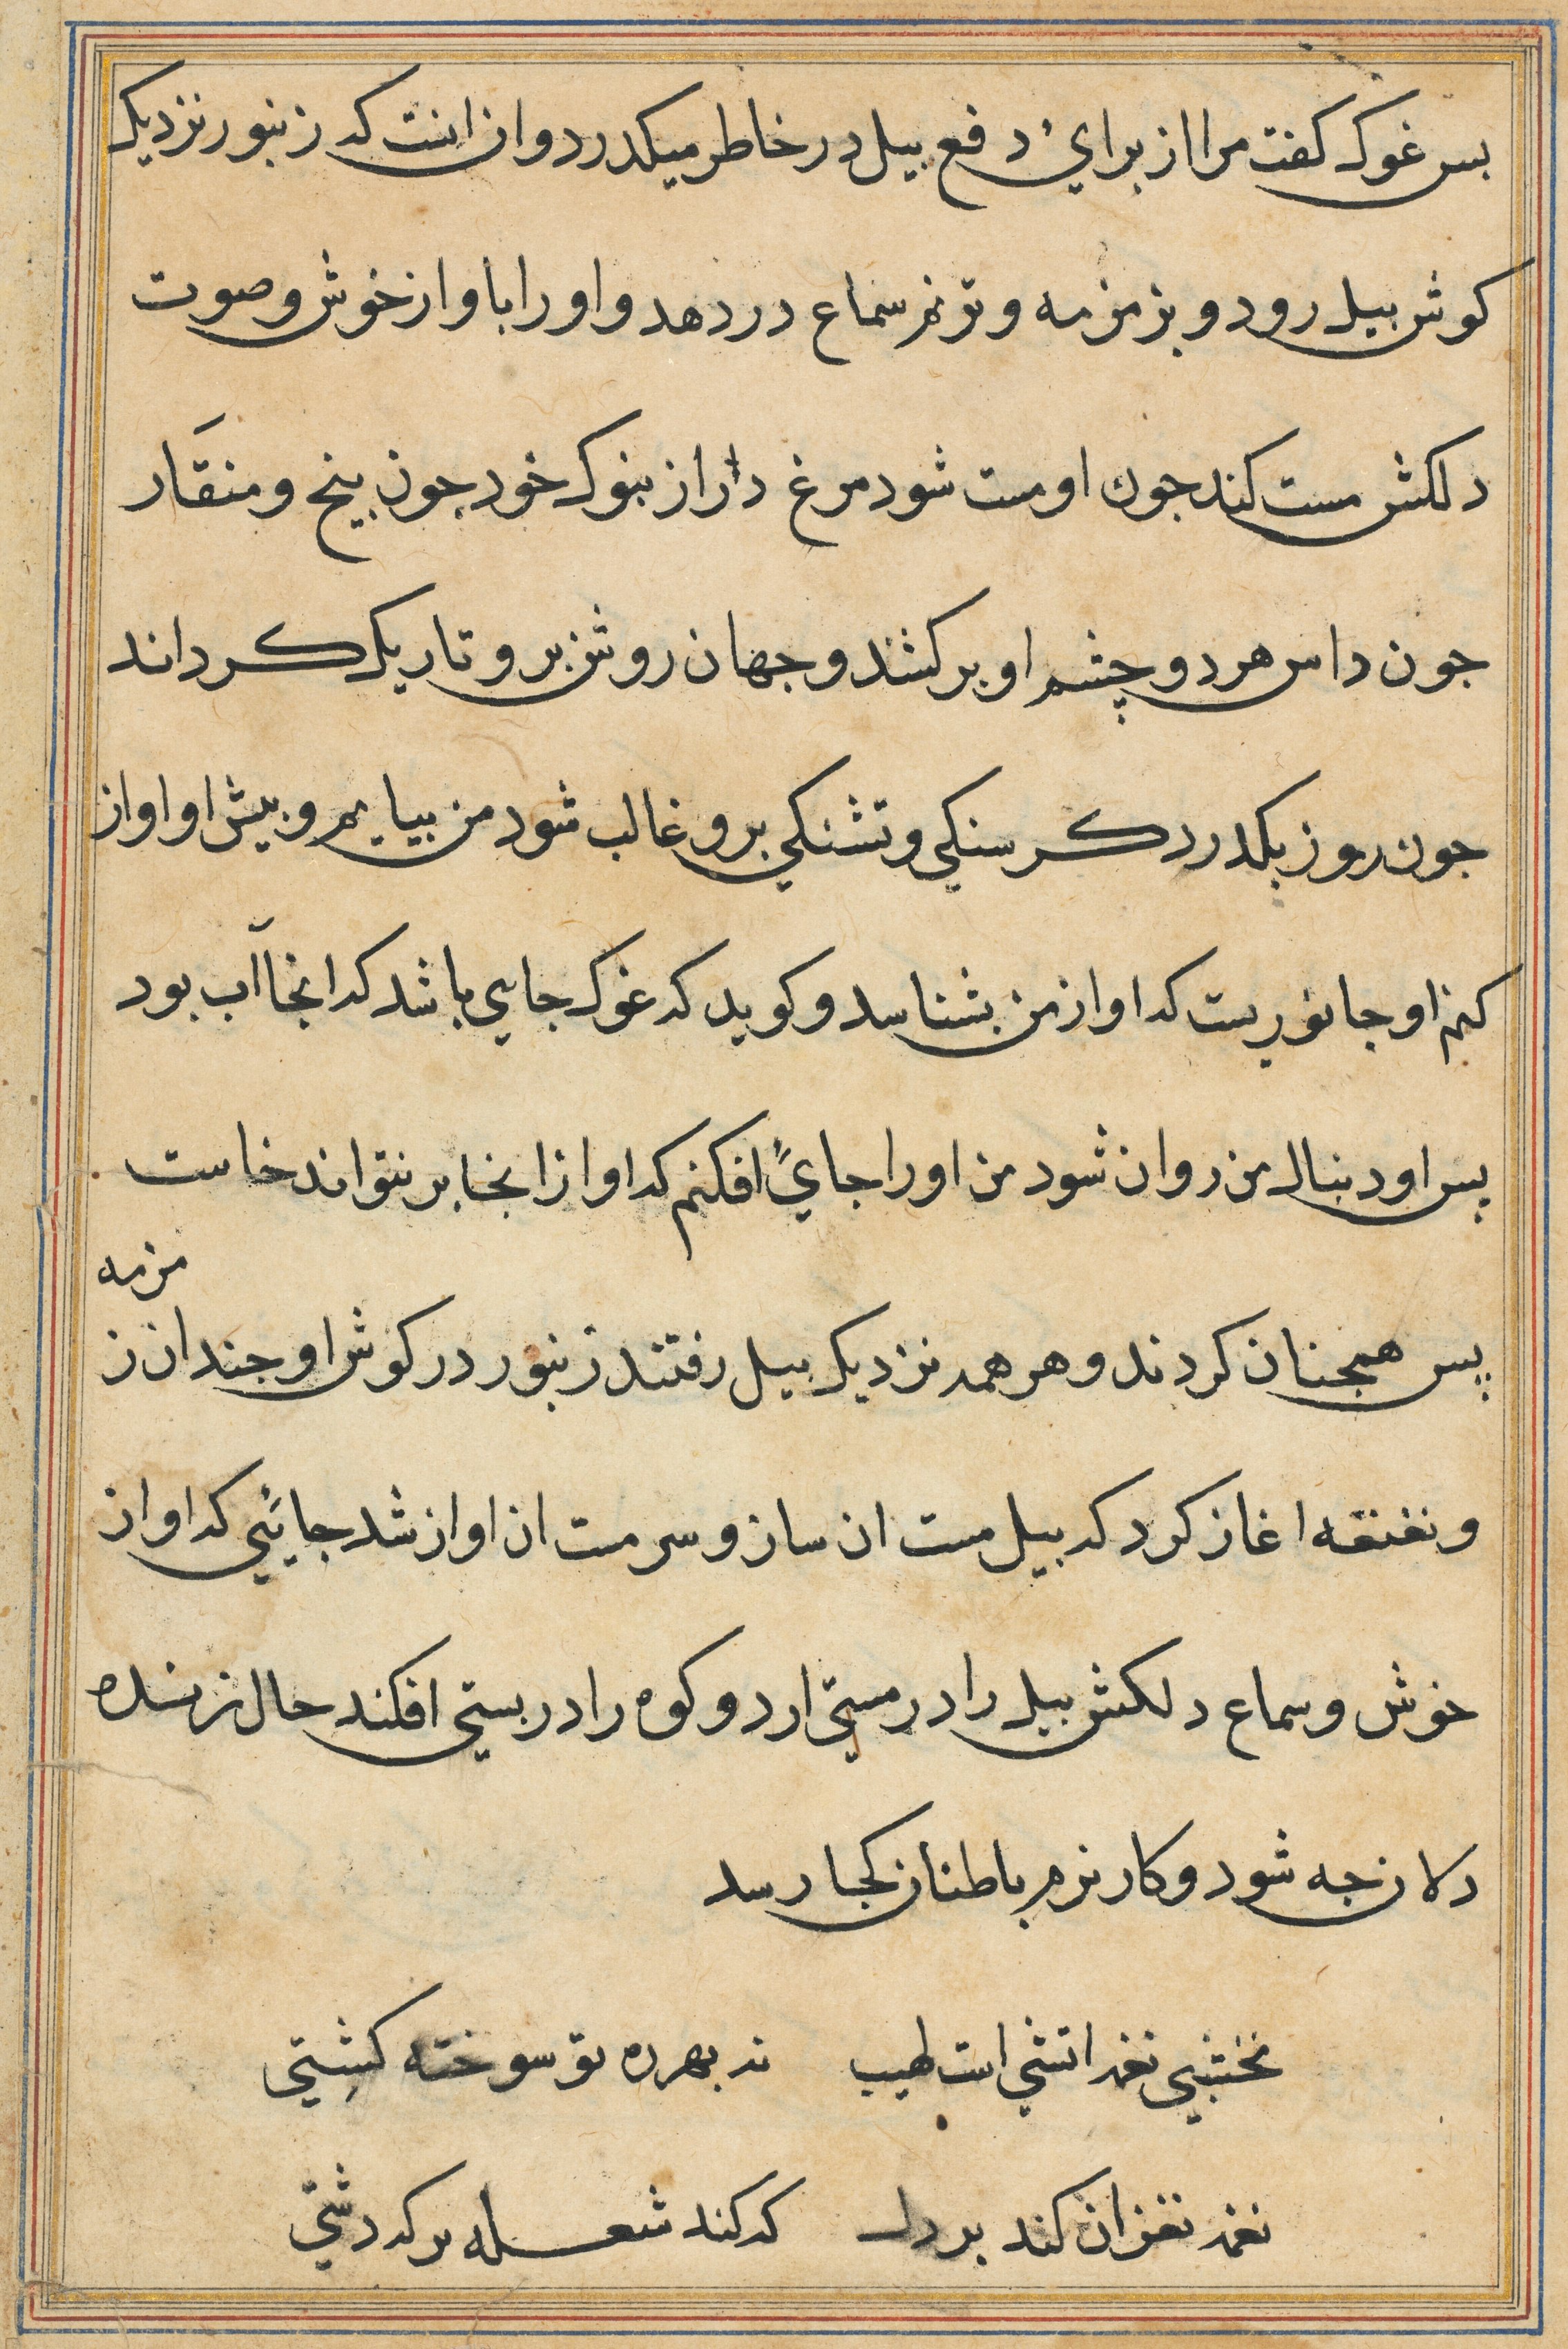 بس غوک کفت مرا از برای دفع بیل در خاطر میکدرد وان اینست که زنبور نزدیک
کوش بیل رود و بزمزمه و ترنم سماع در دهد و او را باواز خوش و صوت
دلکش مست کند جون او مست شود مرغ دراز بنوک خود جون بیخ و منقار
جون داس هر دو چشم او بر کشند و جهان روشن برو تاریک کرداند
جون روز بکدرد کرسنکی و تشنکی برو غالب شود من بیایم و بیش او اواز
کنم او جانوریست که اواز من بشناسد و کوید که غوک جایی باشد که انجا آب بود
پس او دنبال من روان شود من او را جایٔ افکنم که او از انجا بر نتواند خاست
مزمه
پس همجنان کردند و هر همه نزدیک بیل رفتند زنبور در کوش او جندان ز
و نغنغه اغاز کرد که بیل مست ان ساز و سرمست ان اواز شد جائی که اواز
خوش و سماع دلکش بیل را در مستی ارد و کوه را در بستی افکند حال زنده
دلان جه شود و کار نرم باطنان کجا رسد
نخشبی نغمه اتشی است لهیب نه بهر ره تو سوخته کشتی
نغمه نغز ان کند بر دل که کند شعله بر که دشتی